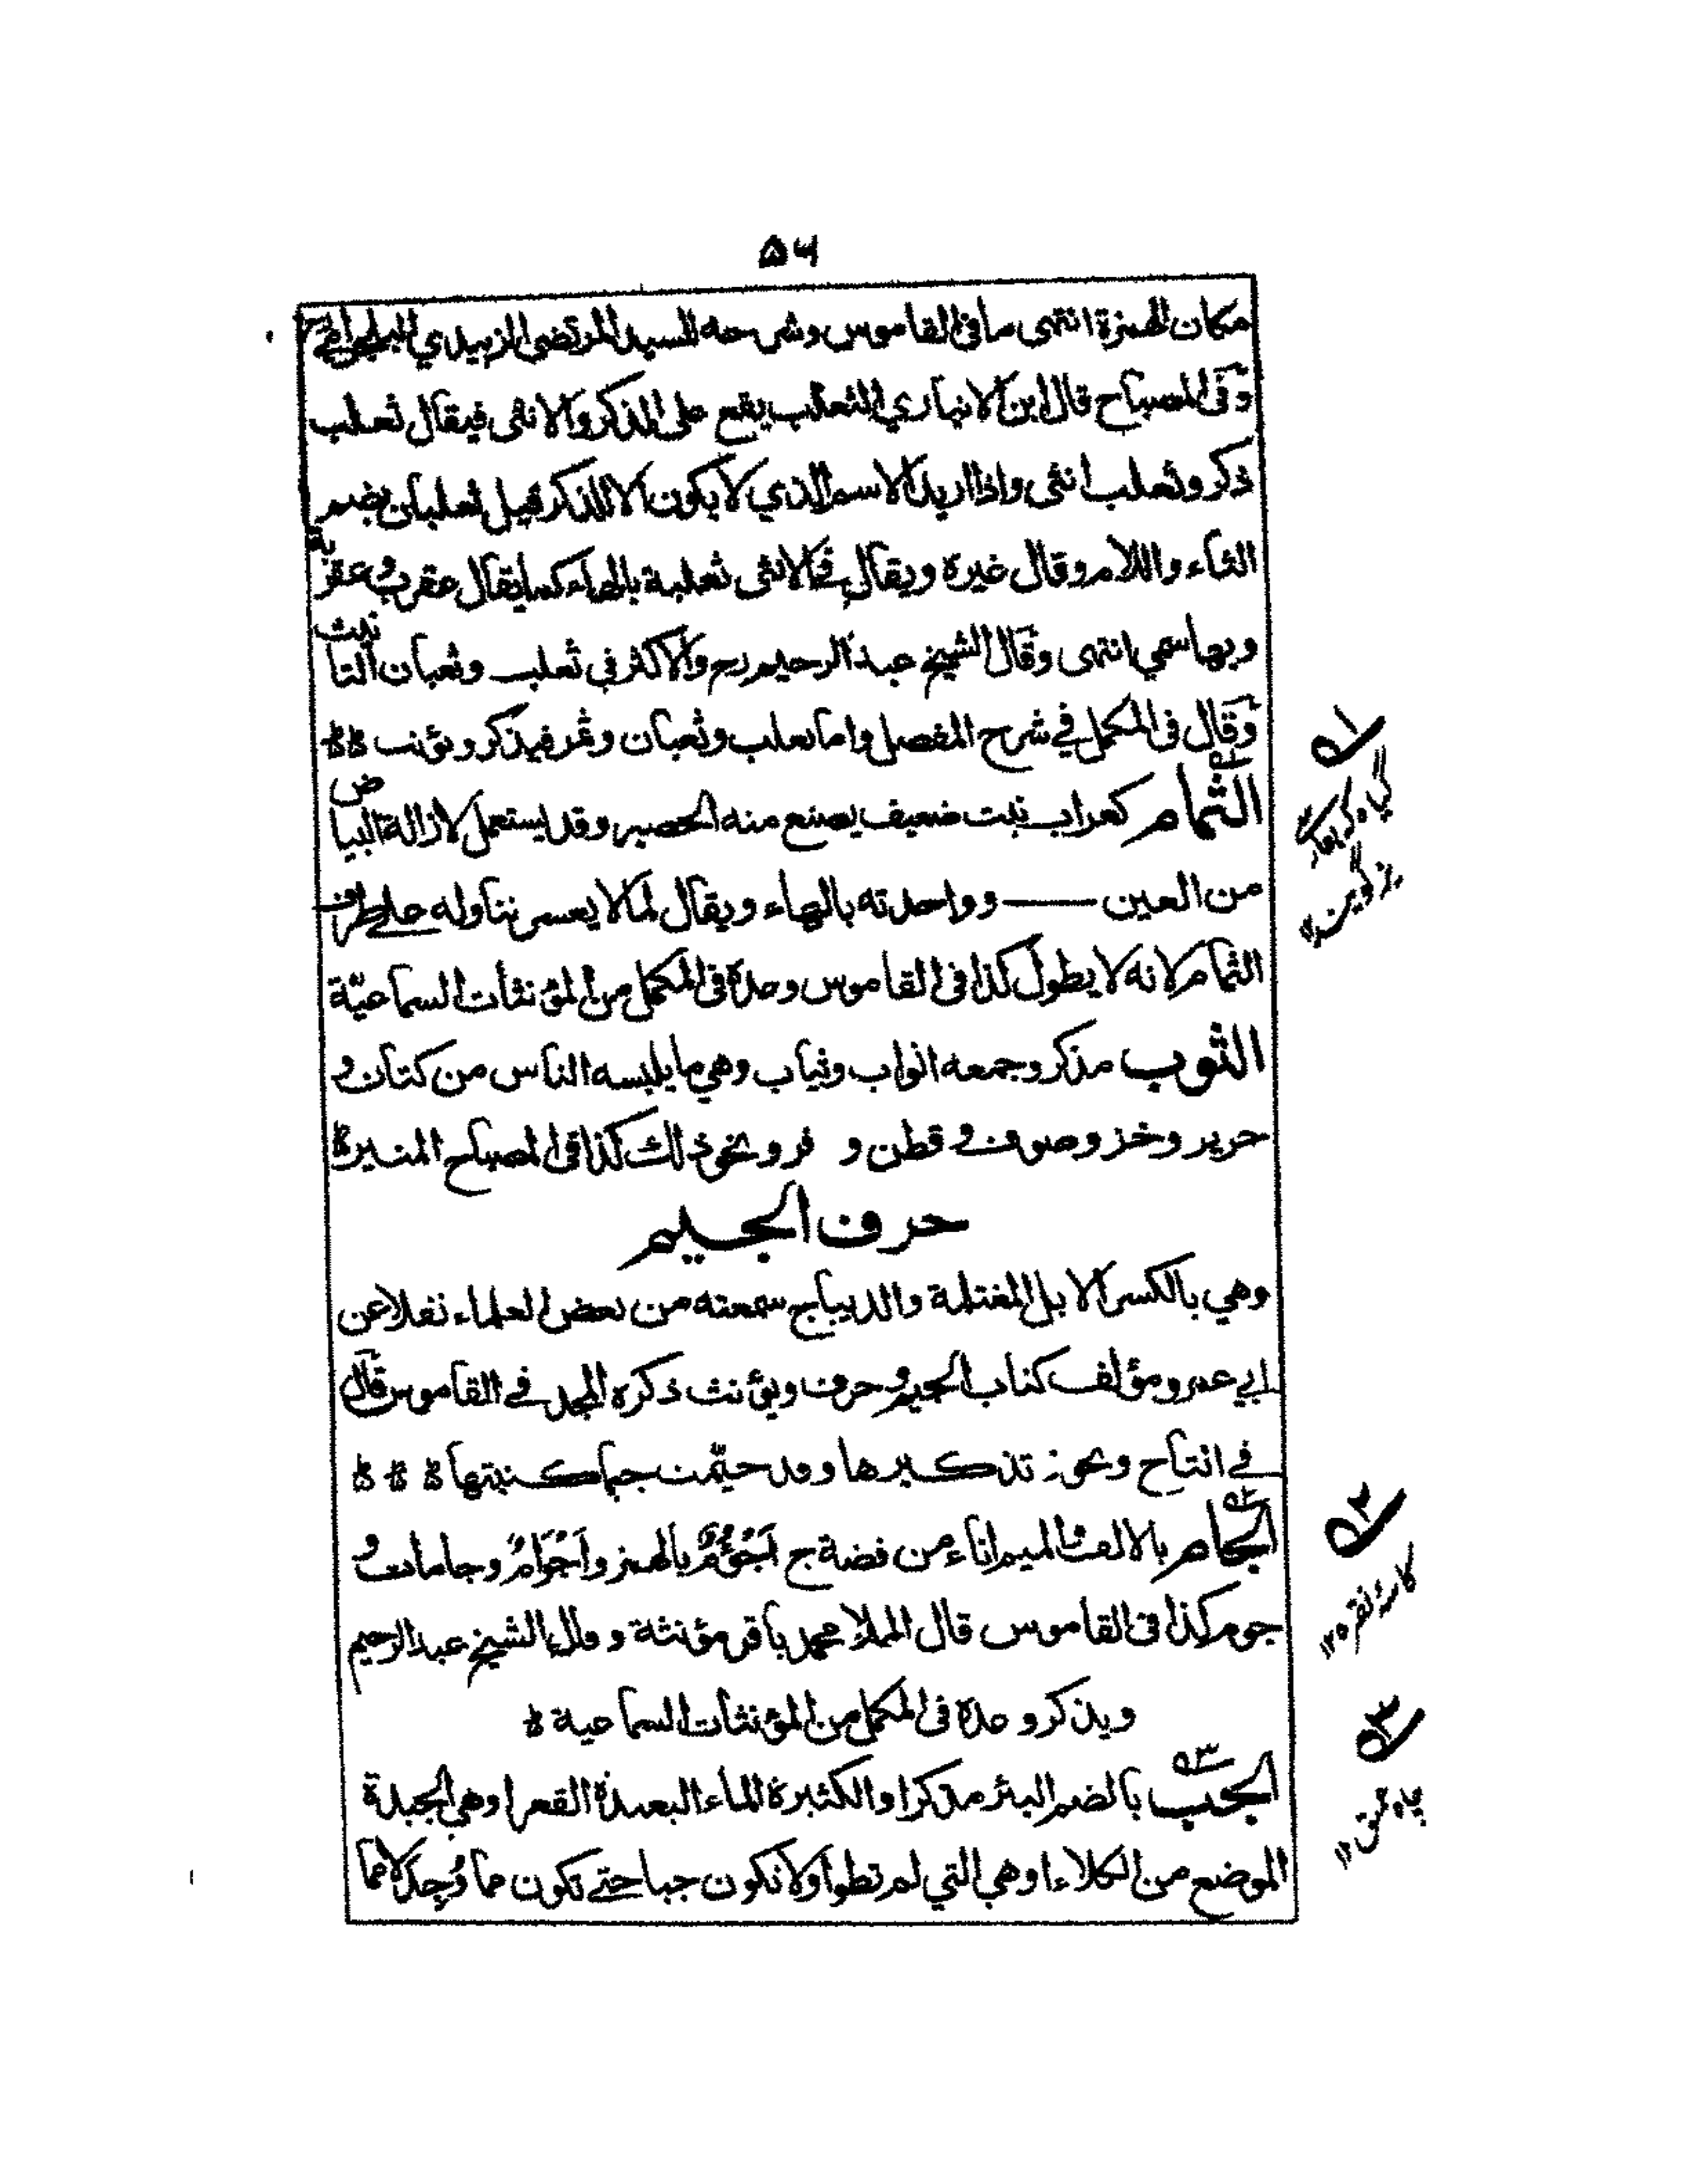 ۵۶
مكان الهمزة انتهى ما فى القاموس وشرحه للسيد المرتضى الزبيدي
وفى المصباح قال ابن الانباري الثعلب يقع على المذكر والانثى فيقال ثعلب
ذكر وثعلب انثى واذا اريد الاسم الذي لا يكون الا للذكر قيل ثعلبان بضم
الثاء واللام وقال غيره ويقال في الانثى ثعلبة بالهاء كما يقال عقرب وعقربة
وبها سمي انتهى وقال الشيخ عبد الرحيم رح والاكثر في ثعلب وثعبان التانيث
وقال فى المكمل في شرح المفصل واما ثعلب وثعبان وثمر فيذكر ويؤنث
الثمام كغراب نبت ضعيف يصنع منه الحصير وقد يستعمل لازالة البياض
من العين ــــ وواحدته بالهاء ويقال لما لا يعسر تناوله على طرف
الثمام لانه لا يطول كذا فى القاموس وعده فى المكمل من المؤنثات السماعيّة
الثوب مذكر وجمعه اثواب وثياب وهي ما يلبسه الناس من كتان و
حرير وخز وصوف و قطن و فرو ونحو ذلك كذا فى المصباح المنير
حرف الجيم
وهي بالكسر الابل المغتلمة والديباج سمعته من بعض العلماء نقلا عن
ابي عمرو مؤلف كتاب الجيم وحرف ويؤنث ذكره المجد في القاموس قال
في انتاح ويجوز تذكيرها وقد جيّمت جيما كتبتها
الجام بالالف والميم اناء من فضة ج اَجْؤُمٌ بالهمز واَجْوَامٌ وجامات و
جوم كذا فى القاموس قال الملا محمد باقر مؤنثة وقال الشيخ عبد الرحيم
ويذكر وعده فى المكمل من المؤنثات السماعية
الجب بالضم البئر مذكر او الكثيرة الماء البعيدة القعر او هي الجيدة
الموضع من الكلاء او هي التي لم تطو او لا تكون جبا حتى تكون مما وُجِدَ لا مما
۵۱
۵۲
كاسۂ نقره ۱۲
۵۳
چاه عمق ۱۲